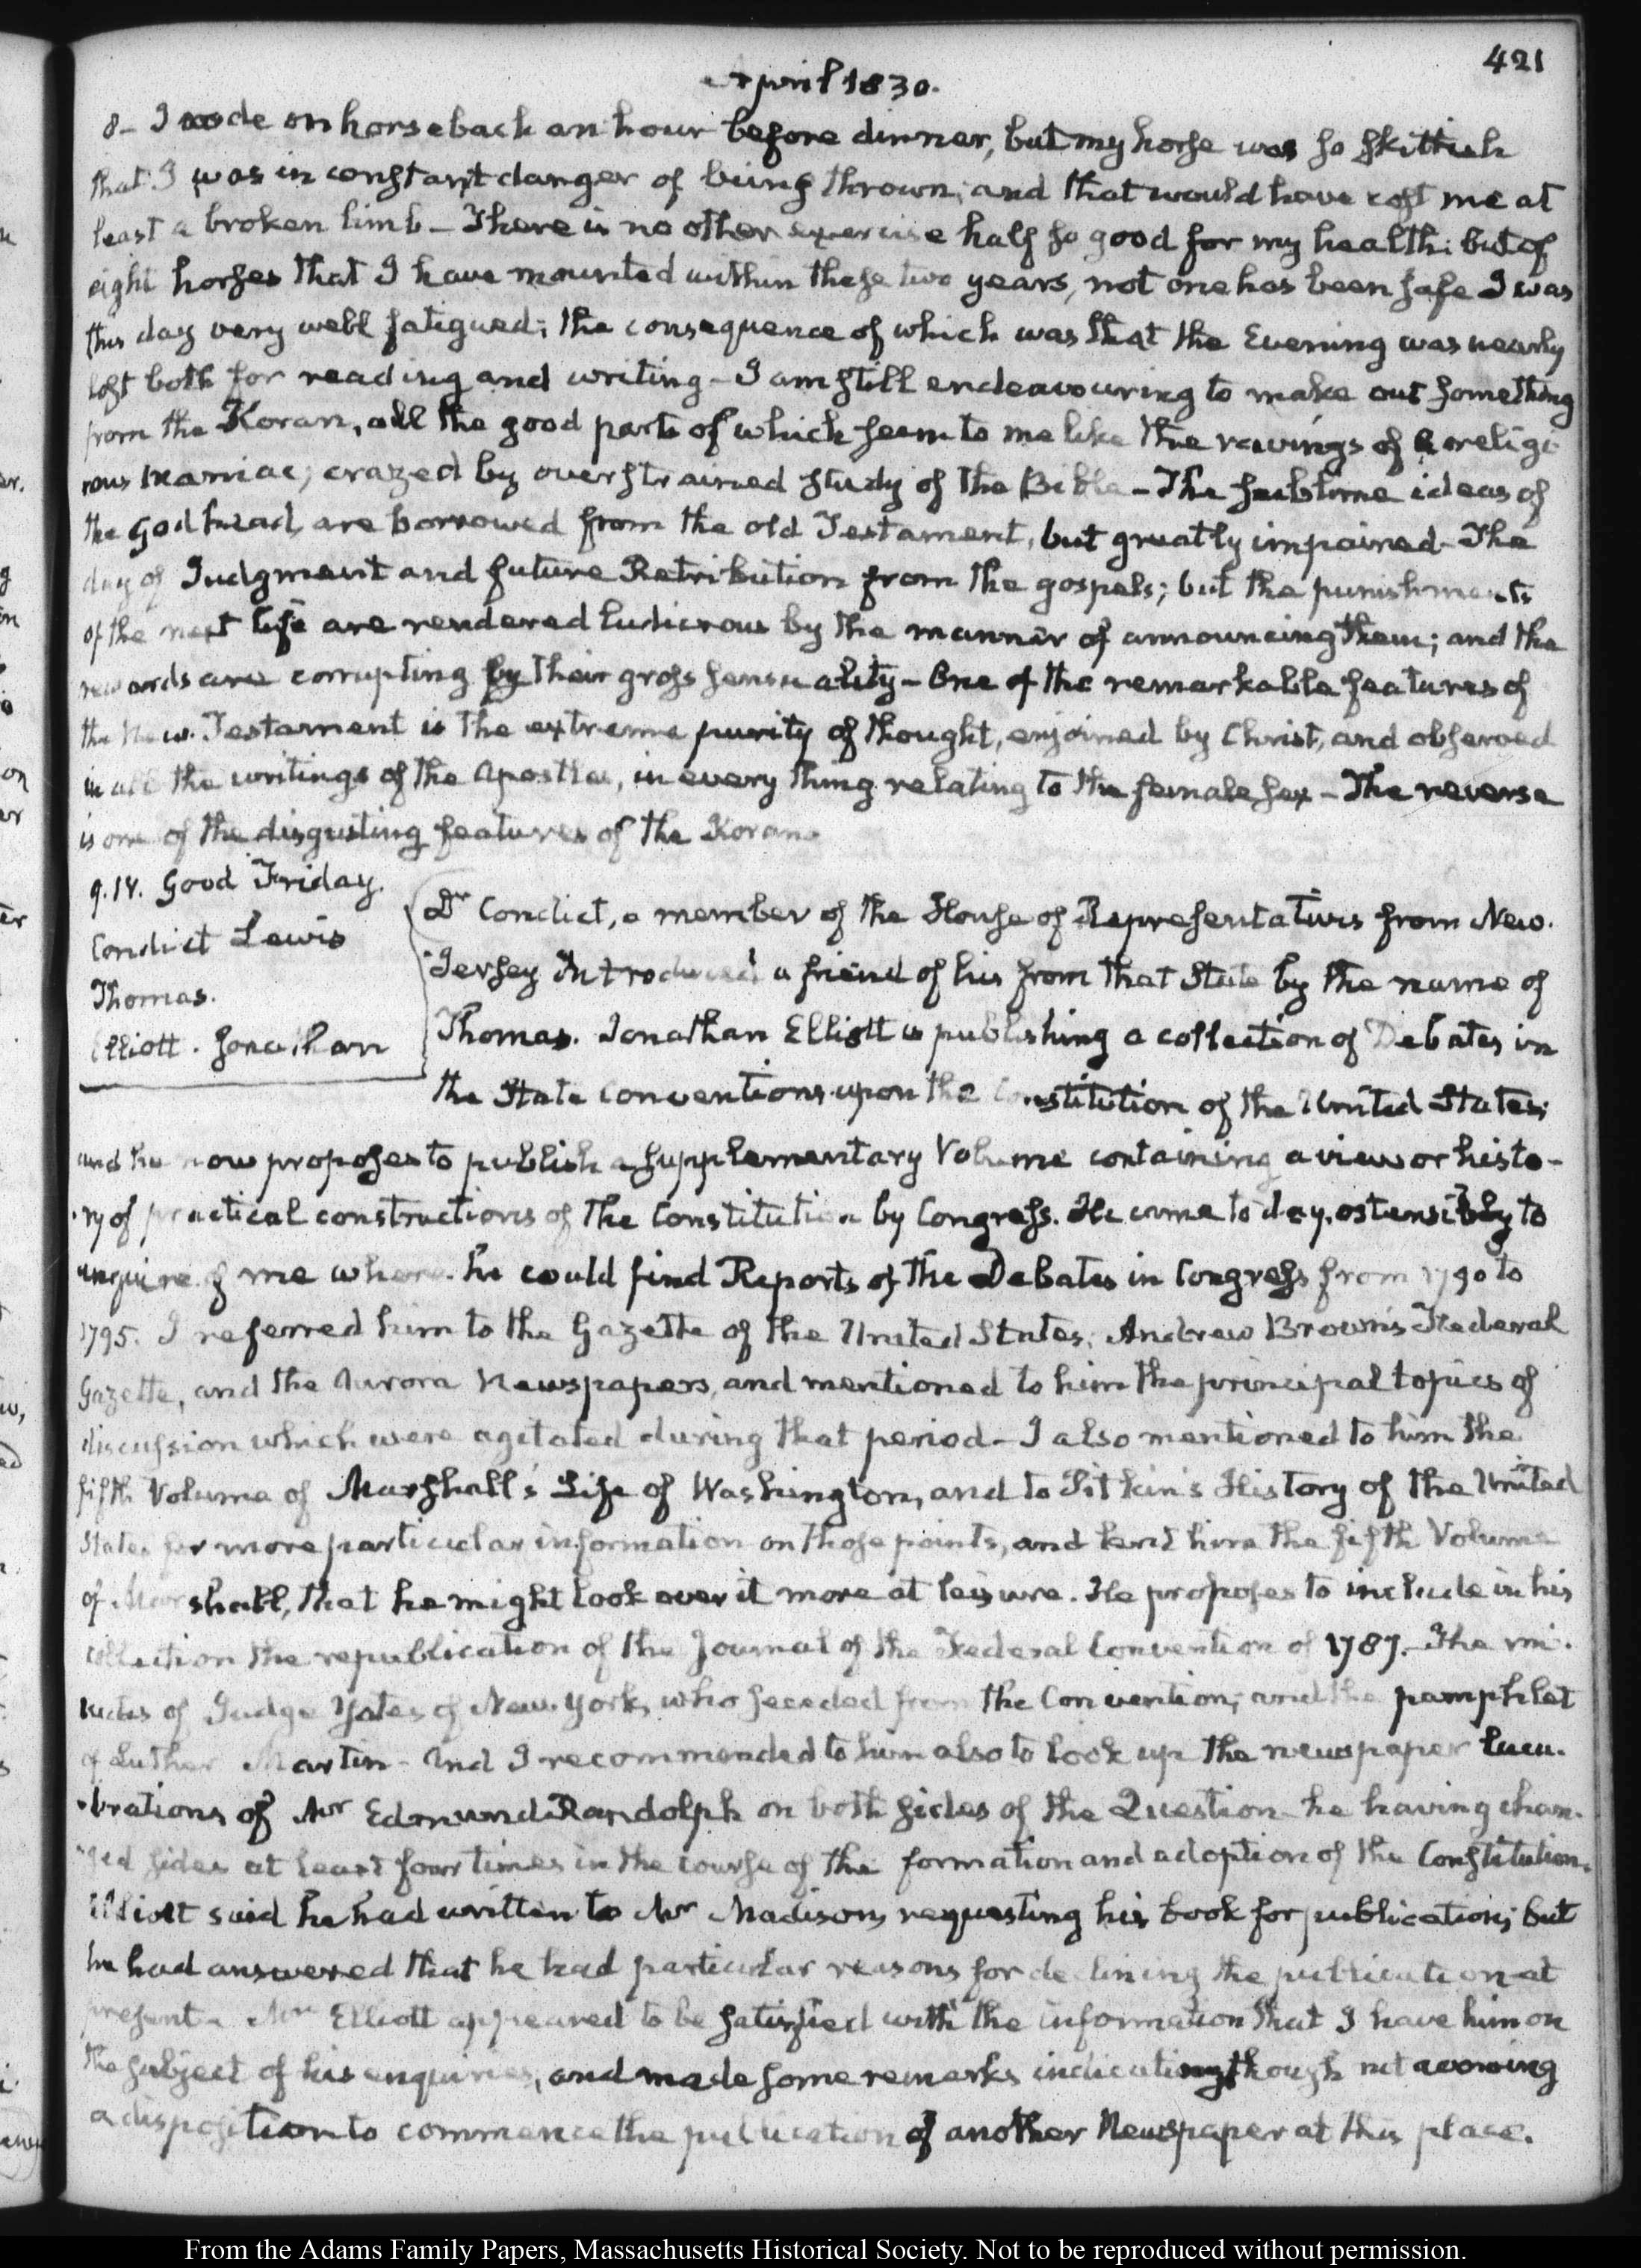 421
April 1830.
8- I rode on horseback an hour before dinner, but my horse was so skittish
that I was in constant danger of being thrown; and that would have cost me at
least a broken limb - There is no other exercise half so good for my health: but of
eight horses that I have mounted within these two years, not one has been safe I was
this day very well fatigued; the consequence of which was that the Evening was nearly
lost both for reading and writing - I am still endeavouring to make out something
from the Koran, all the good parts of which seem to me like the ravings of a religi
ous maniac, crazed by overstrained study of the Bible - The sublime ideas of
the Godhead, are borrowed from the old Testament, but greatly impaired - The
day of Judgment and future Retribution from the gospels; but the punishments
of the next life are rendered ludicrous by the manner of announcing them; and the
rewards are corrupting by their gross sensuality - One of the remarkable features of
the New. Testament is the extreme purity of thought, enjoined by Christ, and observed
in all the writings of the Apostles, in every thing relating to the female sex - The reverse
is one of the disgusting features of the Koran.
9. IV. Good Friday.
Condict Lewis
Thomas.
Elliott. Jonathan
Dr Condict, a member of the House of Representatives from New.
Jersey Introduced a friend of his from that State by the name of
Thomas. Jonathan Elliott is publishing a collection of Debates in
the State conventions upon the Constitution of the United States;
and he now proposes to publish a supplementary Volume containing a view or histo-
ry of practical constructions of the Constitution by Congress. He came to day, ostensibly to
enquire of me where he could find Reports of the Debates in Congress from 1790 to
1795. I referred him to the Gazette of the United States, Andrew Brown's Federal
Gazette, and the Aurora Newspapers, and mentioned to him the principal topics of
discussion which were agitated during that period - I also mentioned to him the
fifth Volume of Marshall's Life of Washington, and to Pitkin's History of the United
States for more particular information on those points, and lent him the fifth Volume
of Marshall, that he might look over it more at leisure. He proposes to include in his
collection the republication of the Journal of the Federal Convention of 1787. - The mi-
nutes of Judge Yates of New. York, who seceded from the Convention; and the pamphlet
of Luther Martin - And I recommended to him also to look up the newspaper lucu-
brations of Mr Edmund Randolph on both sides of the Question - he having chan-
ged sides at least four times in the course of the formation and adoption of the Constitution.
Elliott said he had written to Mr Madison, requesting his book for publication; but
he had answered that he had particular reasons for declining the publication at
present - Mr Elliott appeared to be satisfied with the information that I have him on
the subject of his enquiries, and made some remarks indicating though not avowing
a disposition to commence the publication of another Newspaper at this place.
From the Adams Family Papers, Massachusetts Historical Society. Not to be reproduced without permission.